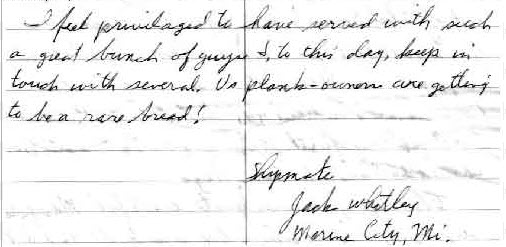 I feel privilaged to have served with such
a great bunch of guys & to this day, keep in
touch with several. Us plank-owners are getting
to be a rare bread!
Shipmate
Jack Whitley
Marine City, Mi.